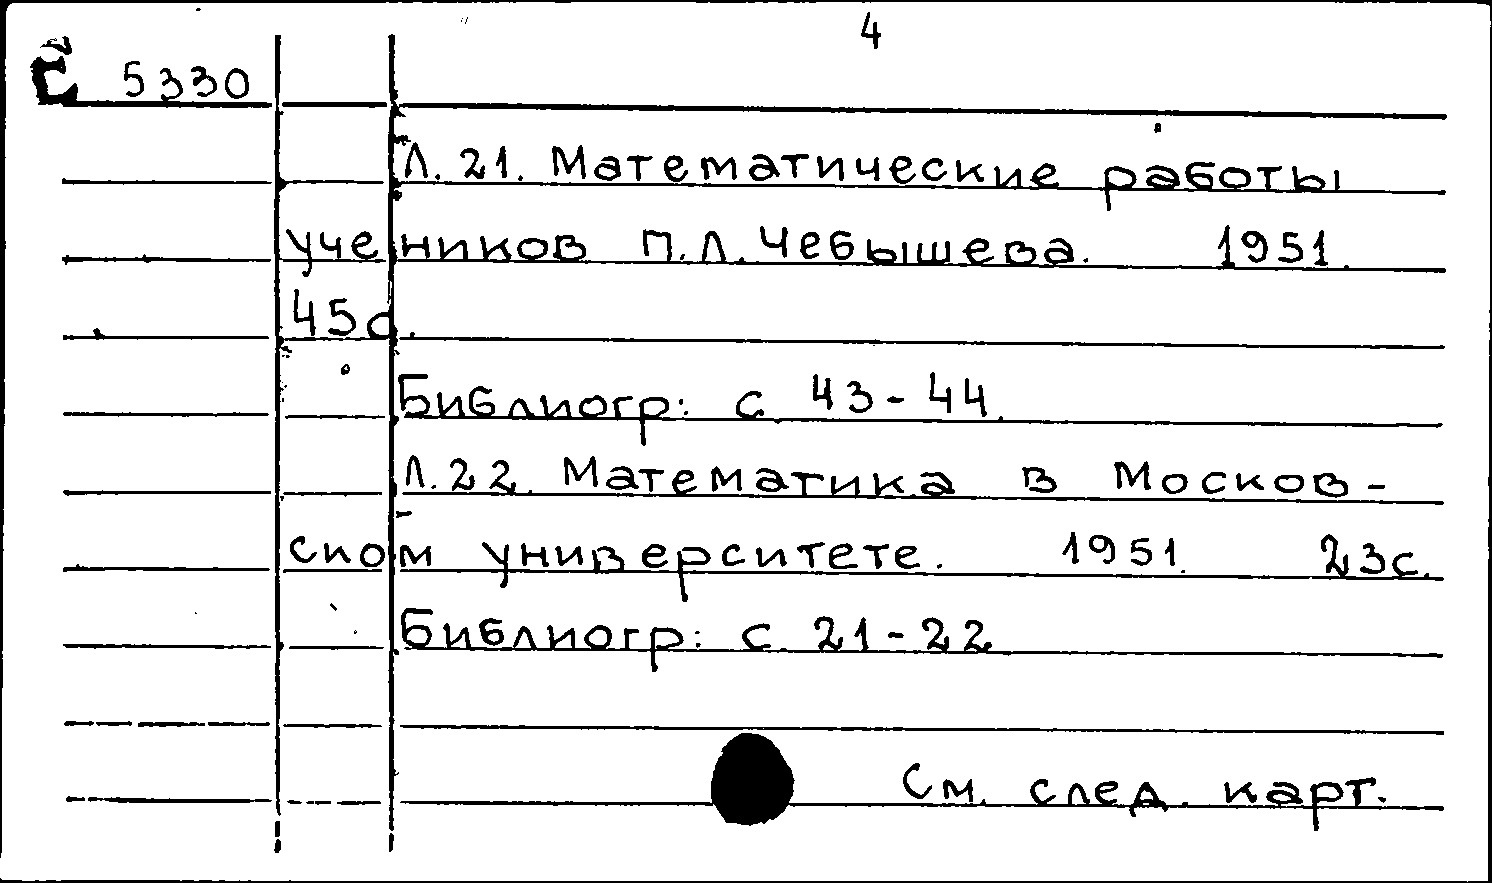 4
5330
Л. 21. Математические работы
учеников П.Л. Чебышева. 1951.
45с.
Библиогр: с. 43-44.
Л. 22. Математика в Москов-
ском университете. 1951. 23с.
Библиогр: с. 21-22
См. след. карт.